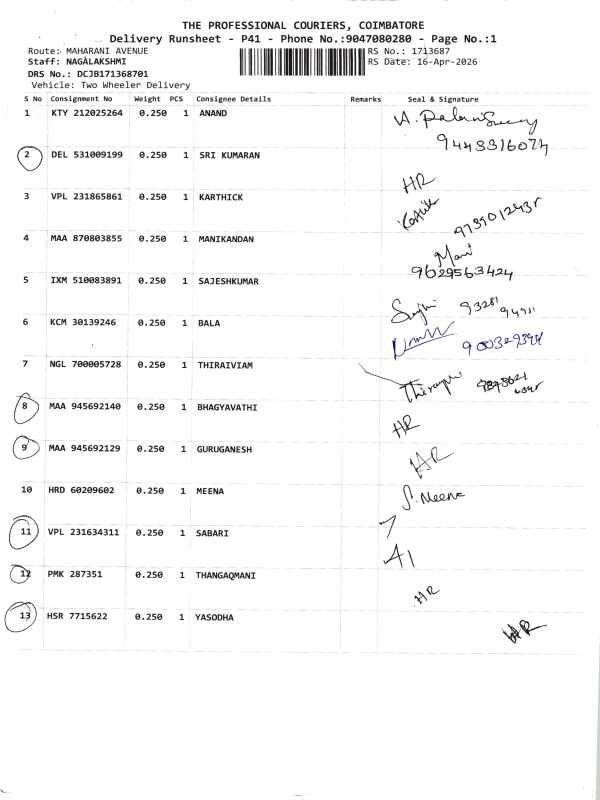 THE PROFESSIONAL COURIERS, COIMBATORE
Delivery Runsheet - P41 - Phone No.:9047080280 - Page No.:1
Route: MAHARANI AVENUE RS No.: 1713687
Staff: NAGALAKSHMI RS Date: 16-Apr-2026
DRS No.: DCJB171368701
Vehicle: Two Wheeler Delivery
S No Consignment No Weight PCS Consignee Details Remarks Seal & Signature
1 KTY 212025264 0.250 1 ANAND
9443316074
2 DEL 531009199 0.250 1 SRI KUMARAN
HR
3 VPL 231865861 0.250 1 KARTHICK
4 MAA 870803855 0.250 1 MANIKANDAN
Mani
9629563424
5 IXM 510083891 0.250 1 SAJESHKUMAR
93281
6 KCM 30139246 0.250 1 BALA
7 NGL 700005728 0.250 1 THIRAIVIAM
8 MAA 945692140 0.250 1 BHAGYAVATHI
HR
9 MAA 945692129 0.250 1 GURUGANESH
HR
10 HRD 60209602 0.250 1 MEENA
S. Meena
11 VPL 231634311 0.250 1 SABARI
12 PMK 287351 0.250 1 THANGAQMANI
HR
13 HSR 7715622 0.250 1 YASODHA
HR